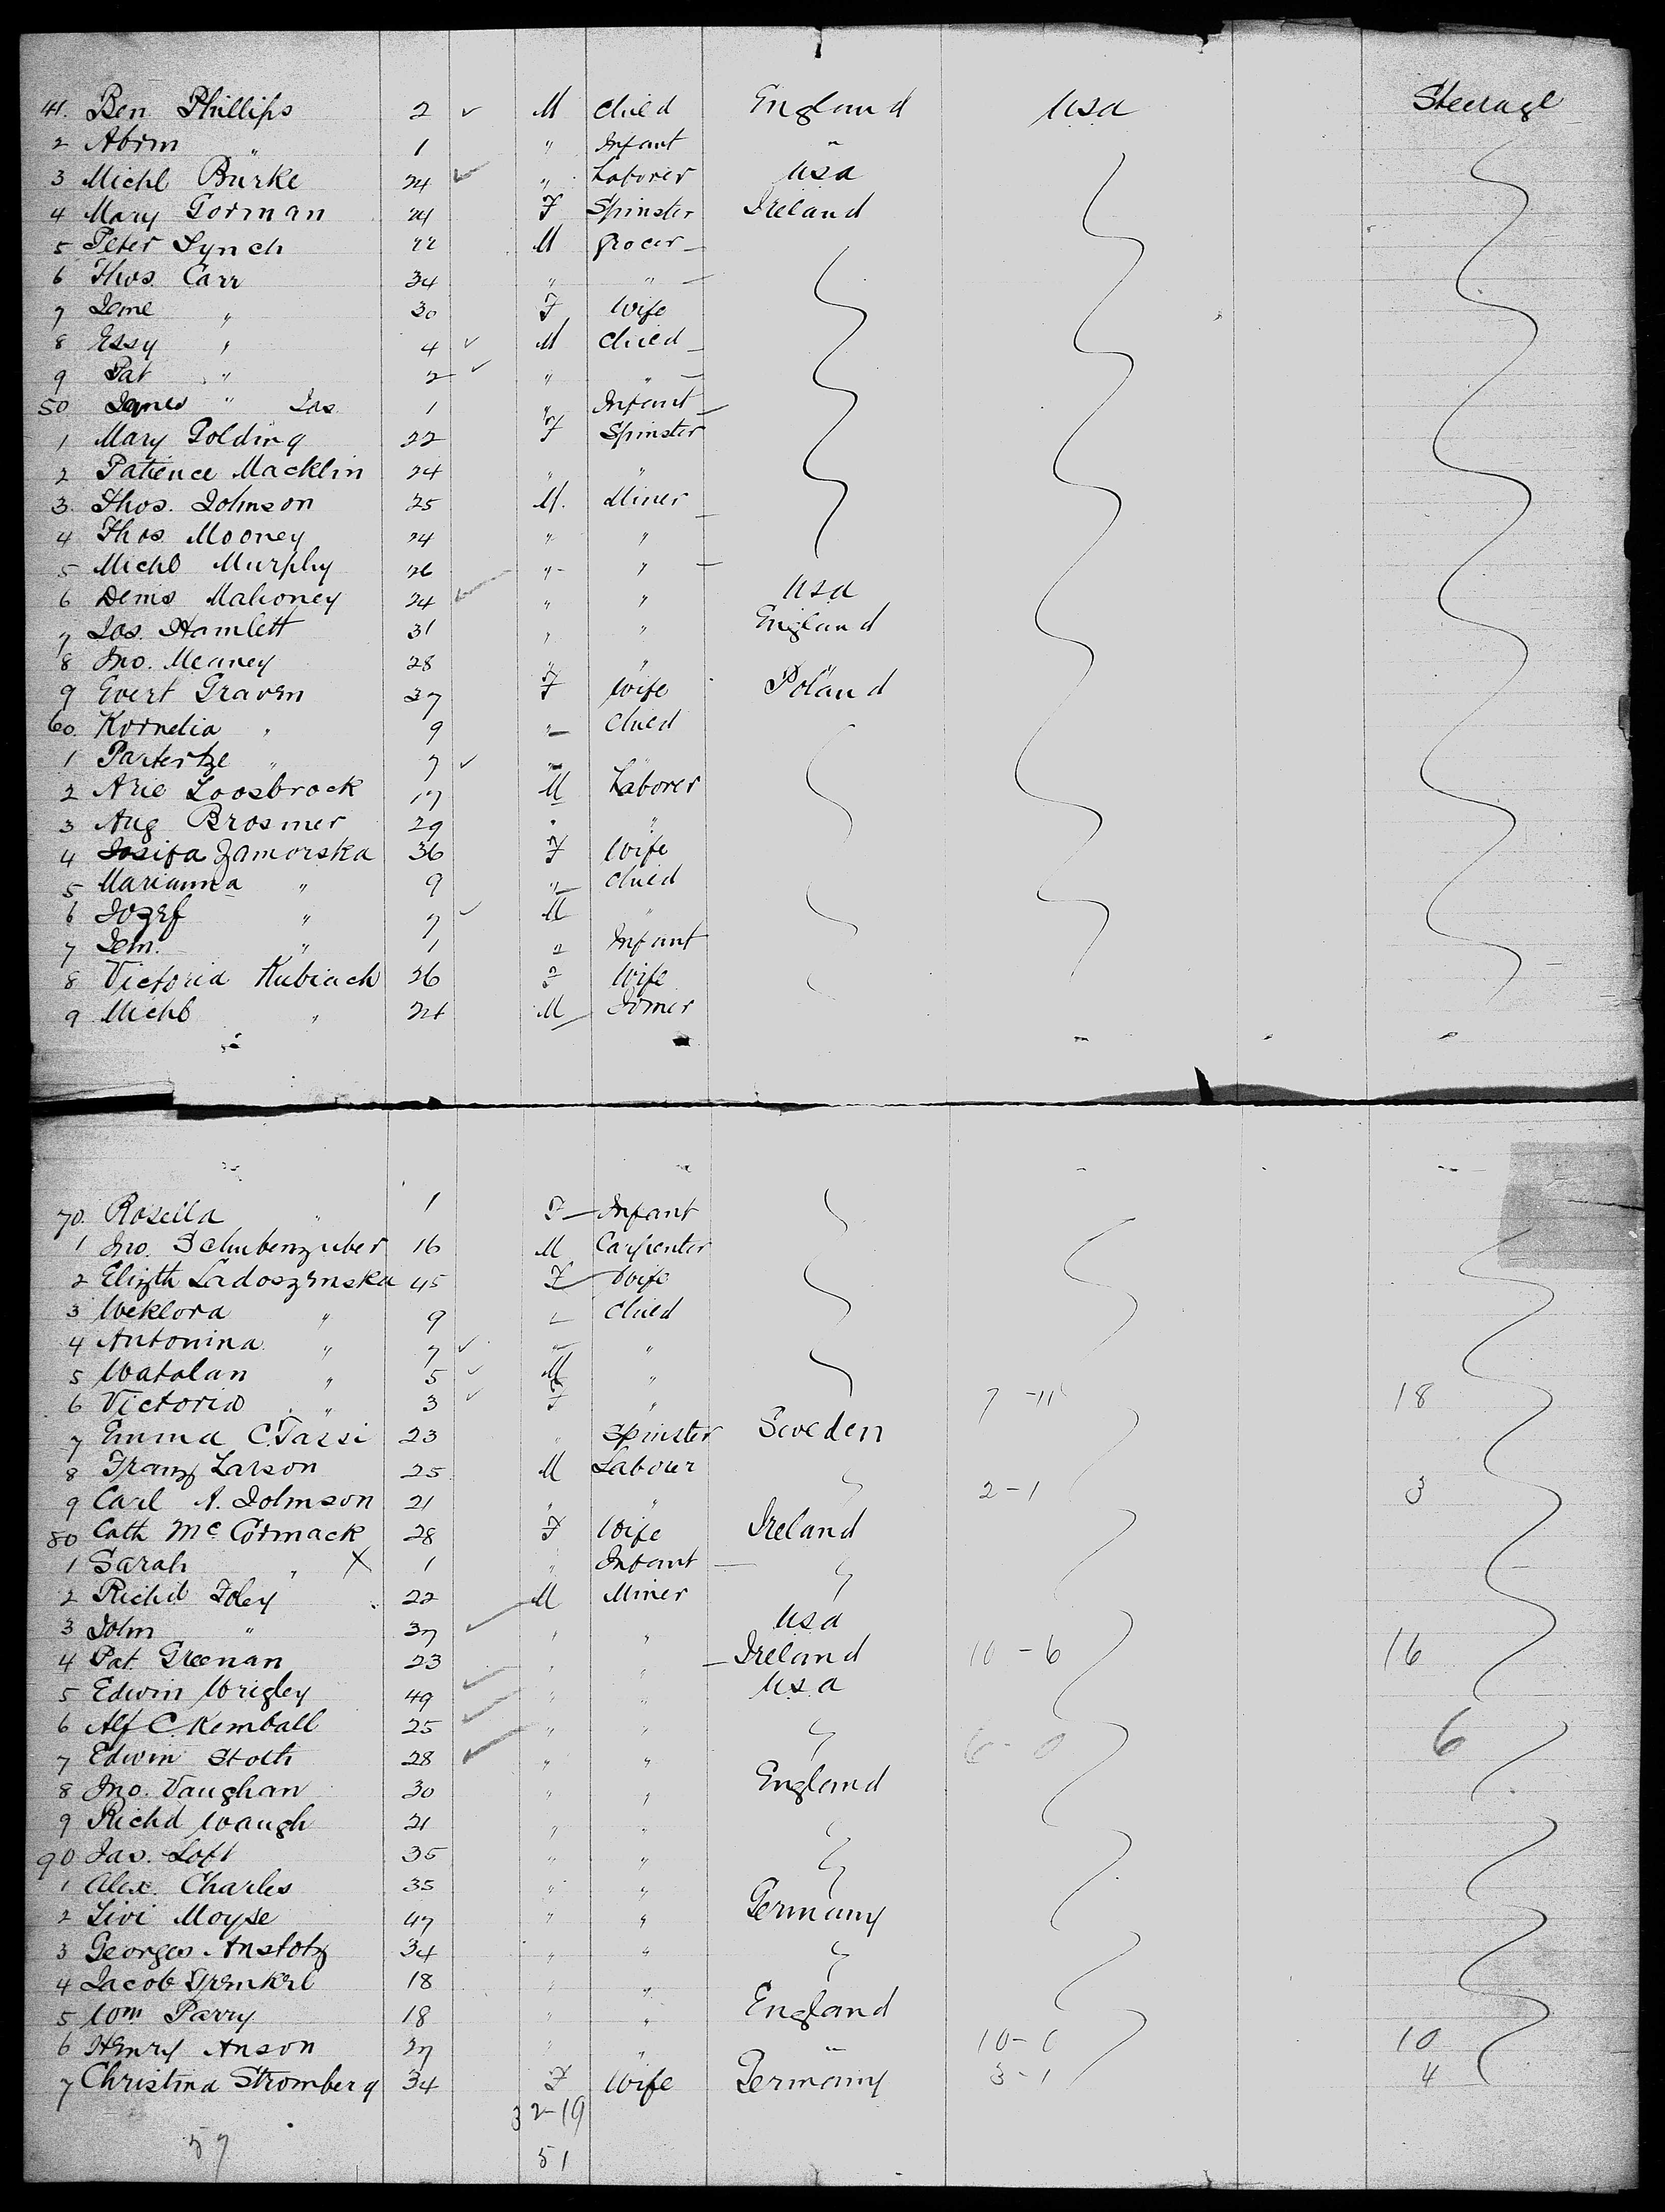 41. Ben Phillips 2 ✓ M Child England Usa Steerage
2 Abrm " 1 " Infant "
3 Michl Burke 24 ✓ " Laborer Usa
4 Mary Gorman 24 F Spinster Ireland
5 Peter Lynch 22 M Grocer
6 Thos. Carr 34 " "
7 Jane " 30 F Wife
8 Essy " 4 ✓ M Child
9 Pat " 2 ✓ " "
50 James " Jas 1 " Infant
1 Mary Golding 22 F Spinster
2 Patience Macklin 24 " "
3. Thos. Johnson 25 M. Miner
4 Thos. Mooney 24 " "
5 Michl Murphy 26 " "
6 Denis Mahoney 24 ✓ " " Usa
7 Jos. Hamlett 31 " " England
8 Jno. Meaney 28 " " "
9 Evert Graven 37 F Wife Poland
60. Kornelia " 9 " Child
1 Partertze " 7 ✓ " "
2 Arie Loosbrock 17 M Laborer
3 Aug Brosmer 29 " "
4 Josifa Zamorska 36 F Wife
5 Marianna " 9 " Child
6 Jozef " 7 ✓ M "
7 " 1 " Infant
8 Victoria Kubiach 26 F Wife
9 Michl " 24 M Joiner
70. Rosella " 1 F Infant
1 Jno. Schubenzuber 16 M Carpenter
2 Elizth Ladoszenska 45 F Wife
3 Weklora " 9 " Child
4 Antonina " 7 ✓ " "
5 Watalan " 5 ✓ M "
6 Victoria " 3 ✓ F " 7-11 18
7 Emma C. Tassi 23 " Spinster Sweden
8 Franz Larson 25 M Labour
9 Carl A. Johnson 21 " " " 2-1 3
80 Cath McCormack 28 F Wife Ireland
1 Sarah " X 1 " Infant "
2 Richd Foley 22 M Miner
3 John " 37 ✓ " " Usa
4 Pat. Greenan 23 " " Ireland 10-6 16
5 Edwin Wrigley 49 ✓ " " Usa
6 Alf C. Kemball 25 ✓ " " "
7 Edwin Stott 28 ✓ " " " 6-0 6
8 Jno. Vaughan 30 " " England
9 Richd Waugh 21 " "
90 Jas. Loft 35 " " "
1 Alex. Charles 35 " " "
2 Livi Moyse 47 " " Germany
3 Georges Anstotz 34 " " "
4 Jacob 18 " " "
5 Wm Parry 18 " " England
6 Henry Anson 27 " " " 10-0 10
7 Christina Stromberg 34 F Wife Germany 3-1 4
32-19
57 51